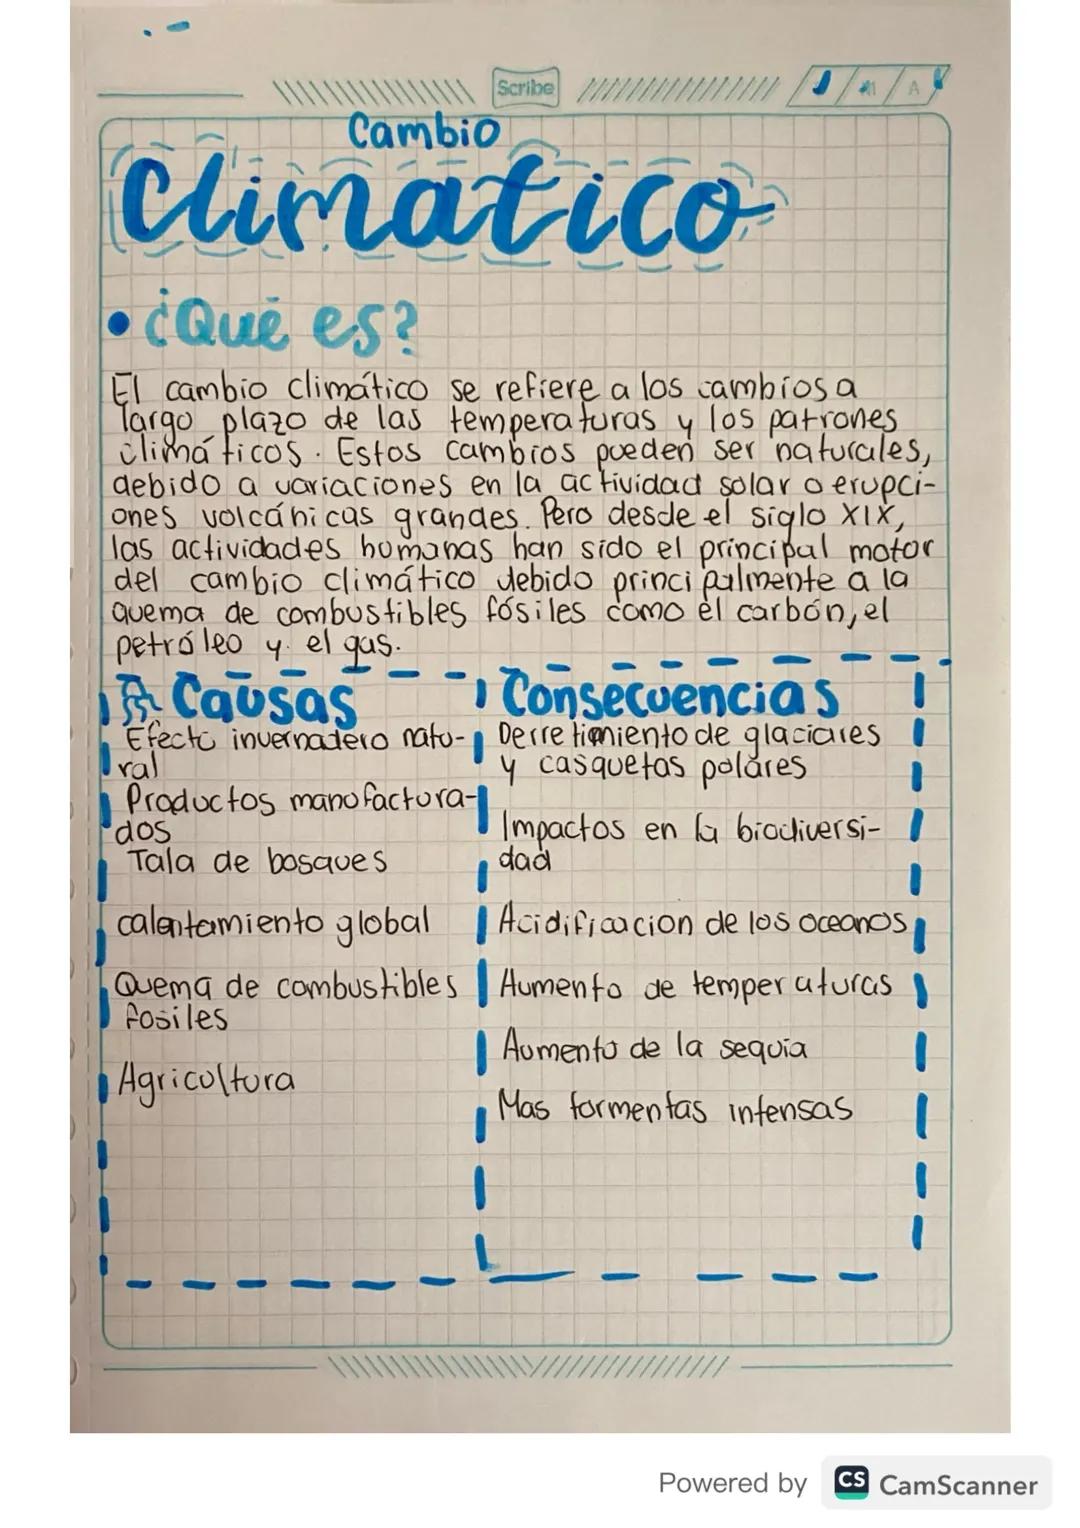 Scribe
A
Cambio
Climatico
• ¿Qué es?
El cambio climático se refiere a los cambios a
largo plazo de las temperaturas y los patrones
climáticos. Estos cambios pueden ser naturales,
debido a variaciones en la actividad solar o erupci-
ones volcánicas grandes. Pero desde el siglo XIX,
las actividades humanas han sido el principal motor
del cambio climático debido principalmente a la
quema de combustibles fósiles como el carbón, el
petróleo y el gas.
Causas
Efecto invernadero natu-
ral
Productos manofactura-
dos
Tala de bosques
calentamiento global
Quema de combustibles
fosiles
Agricultura
Consecuencias
Derretimiento de glaciares
y casquetas polares
Impactos en la biodiversi-
dad
Acidificacion de los oceanos
Aumento de temperaturas
Aumento de la sequia
Mas tormentas intensas
Powered by CS CamScanner